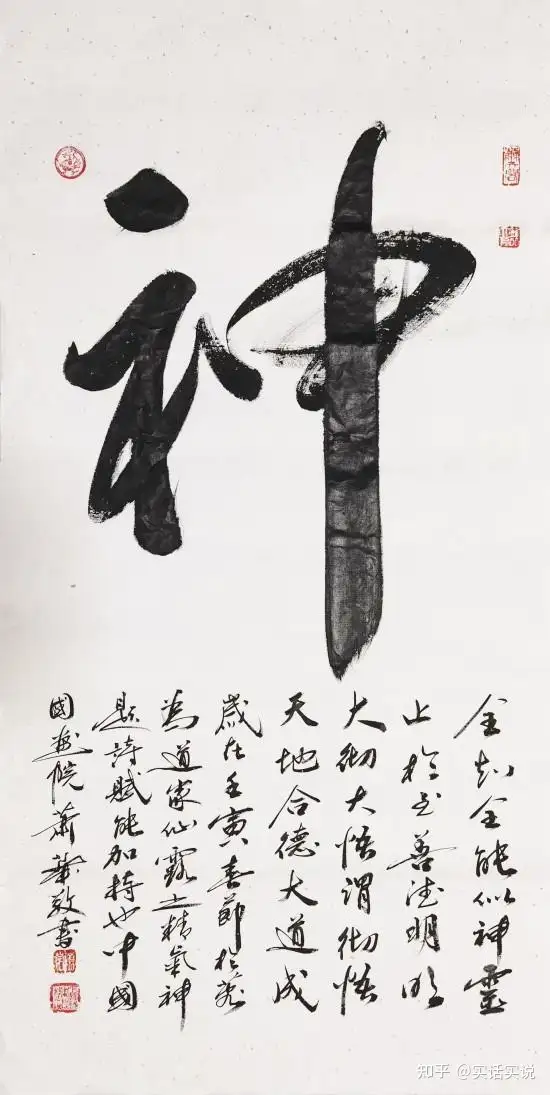 神
全知全能似神靈
止於至善德明明
大彻大悟謂彻悟
天地合德大道成
歲在壬寅春節於
為道家仙露之精氣神
題詩賦能加持也中國
國畫院蕭敬書
知乎 @实话实说